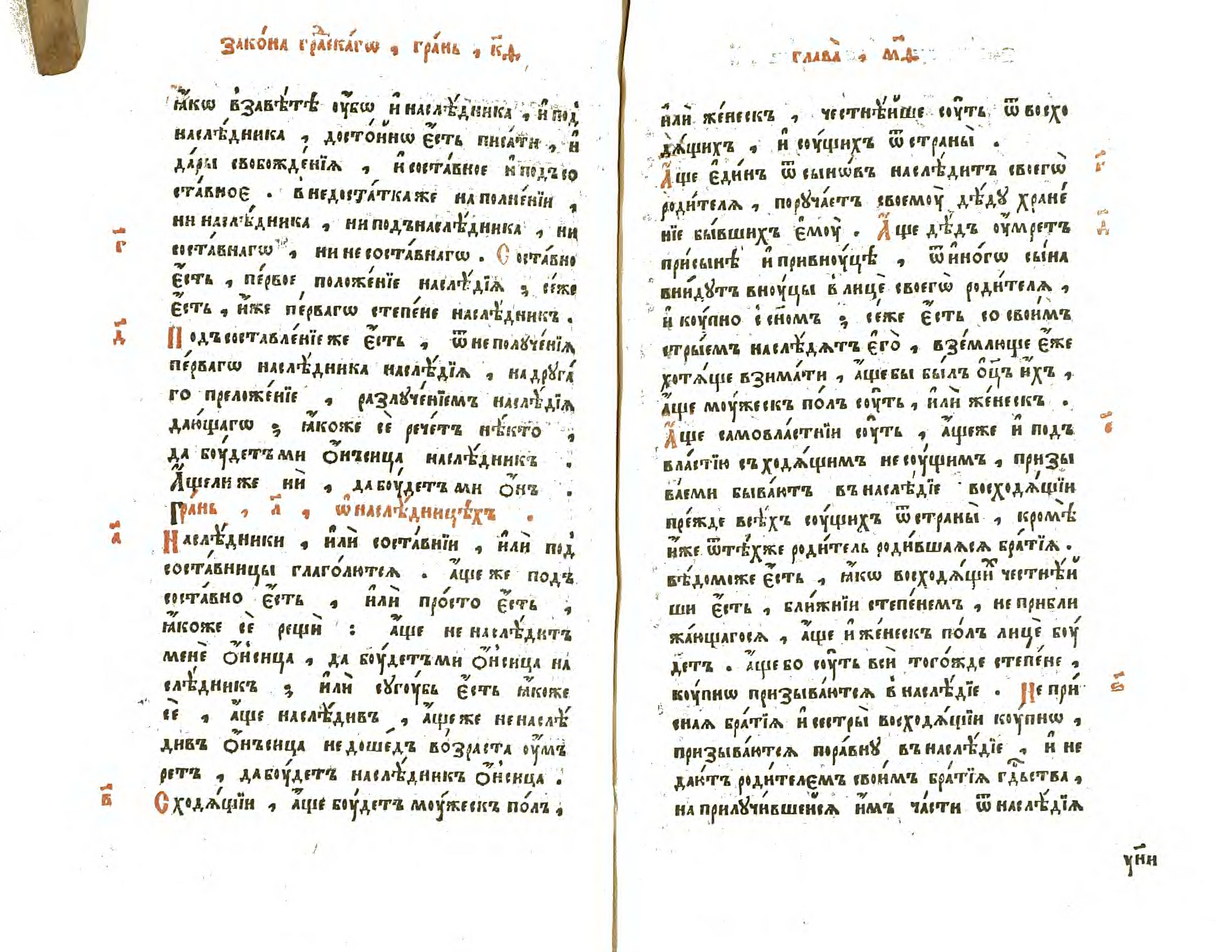 Зако́на гра́скагѡ , гра́нь , к҃ѳ
ꙗ҆́кѡ взавѣ́тѣ ᲂу҆́бѡ и҆наслѣ́дника , и҆под
наслѣ́дника , досто́йнѡ є҆́сть писа́ти , и҆
да́ры свобожде́нїѧ , и҆соста́вное и҆подъсо
ста́вноє . внедоста́ткаже наполне́нїи ,
нинаслѣ́дника , ниподънаслѣ́дника , ни
г҃
соста́внагѡ , нинесоста́внагѡ . Соста́вно
є҆́сть , пе́рвое положе́нїе наслѣ́дїѧ ; се́же
є҆́сть , и҆́же пе́рвагѡ степе́не наслѣ́дникъ .
д҃
Подъсоставле́нїеже є҆́сть , ѿнеполуче́нїѧ
пе́рвагѡ наслѣ́дника наслѣ́дїѧ , надруга́
го преложе́нїе , разлуче́нїемъ наслѣ́дїѧ
даю́щагѡ ; ꙗ҆́коже сѐ рече́тъ нѣ́кто ,
да бꙋ́детъми ѻ҆́нъсица наслѣ́дникъ .
А҆́щелиже нѝ , дабꙋ́детъми ѻ҆́нъ .
Гра́нь , л҃ , ѡ҆наслѣ́дницѣхъ .
а҃
Наслѣ́дники , и҆лѝ соста́внїи , и҆лѝ под
соста́вницы глаго́лютсѧ . а҆́щеже подъ
соста́вно є҆́сть , и҆лѝ про́сто є҆́сть ,
ꙗ҆́коже сѐ рещѝ : а҆́ще не наслѣ́дитъ
менѐ ѻ҆́нсица , да бꙋ́детъми ѻ҆́нсица на
слѣ́дникъ ; и҆лѝ сугꙋ́бь є҆́сть ꙗ҆́коже
сѐ , а҆́ще наслѣ́дивъ , а҆́щеже ненаслѣ́
дивъ ѻ҆́нъсица недоше́дъ во́зраста ᲂу҆́мъ
ретъ , дабꙋ́детъ наслѣ́дникъ ѻ҆́нсица .
в҃
Сходѧ́щїи , а҆́ще бꙋ́детъ мꙋ́жескъ по́лъ ,
глава̀ , м҃ѳ
и҆лѝ же́нескъ , честнѣ́йше сꙋ́ть ѿ восхо
дѧ́щихъ , и҆сꙋ́щихъ ѿ страны̀ .
г҃
А҆́ще є҆ди́нъ ѿ сынѡ́въ наслѣ́дитъ своегѡ̀
роди́телѧ , порꙋча́етъ своемꙋ̀ дѣ́ду хране́
д҃
нїе бы́вшихъ є҆мꙋ̀ . А҆́ще дѣ́дъ ᲂу҆́мретъ
присы́нѣ и҆привнꙋ́цѣ , ѿ и҆но́гѡ сы́на
вни́дутъ внꙋ́цы влицѐ своегѡ̀ роди́телѧ ,
и҆ кꙋ́пно с сн҃омъ ; се́же є҆́сть со свои́мъ
стры́емъ наслѣ́дѧтъ є҆го̀ , взе́млюще є҆́же
хотѧ́ще взима́ти , а҆́щебы бы́лъ ѻ҆ц҃ъ и҆́хъ ,
а҆́ще мꙋ́жескъ по́лъ сꙋ́ть , и҆лѝ же́нескъ .
є҃
А҆́ще самовла́стнїи сꙋ́ть , а҆́щеже и҆ подъ
вла́стїю съходѧ́щимъ несꙋ́щимъ , призы
ва́еми быва́ютъ внаслѣ́дїе восходѧ́щїи
пре́жде всѣ́хъ сꙋ́щихъ ѿ страны̀ , кромѣ̀
и҆́же ѿ тѣ́хже роди́тель роди́вшаѧсѧ бра́тїѧ .
вѣ́доможе є҆́сть , ꙗ҆́кѡ восходѧ́щїхъ честнѣ́й
ши є҆́сть , бли́жнїи степе́немъ , не прибли
жа́ющагосѧ , а҆́ще и҆же́нескъ по́лъ лицѐ бꙋ́
детъ . а҆́ще бо сꙋ́ть всѝ того́жде степе́не ,
ѕ҃
кꙋ́пнѡ призыва́ютсѧ внаслѣ́дїе . Не при́
снаѧ бра́тїѧ и҆сестры̀ восходѧ́щїи кꙋ́пнѡ ,
призыва́ютсѧ пора́вну внаслѣ́дїе , и҆ не
даю́тъ роди́телємъ свои́мъ бра́тїѧ гдⷭ҇ьства ,
на прилучи́вшейсѧ и҆́мъ ча́сти ѿ наслѣ́дїѧ
у҃ни